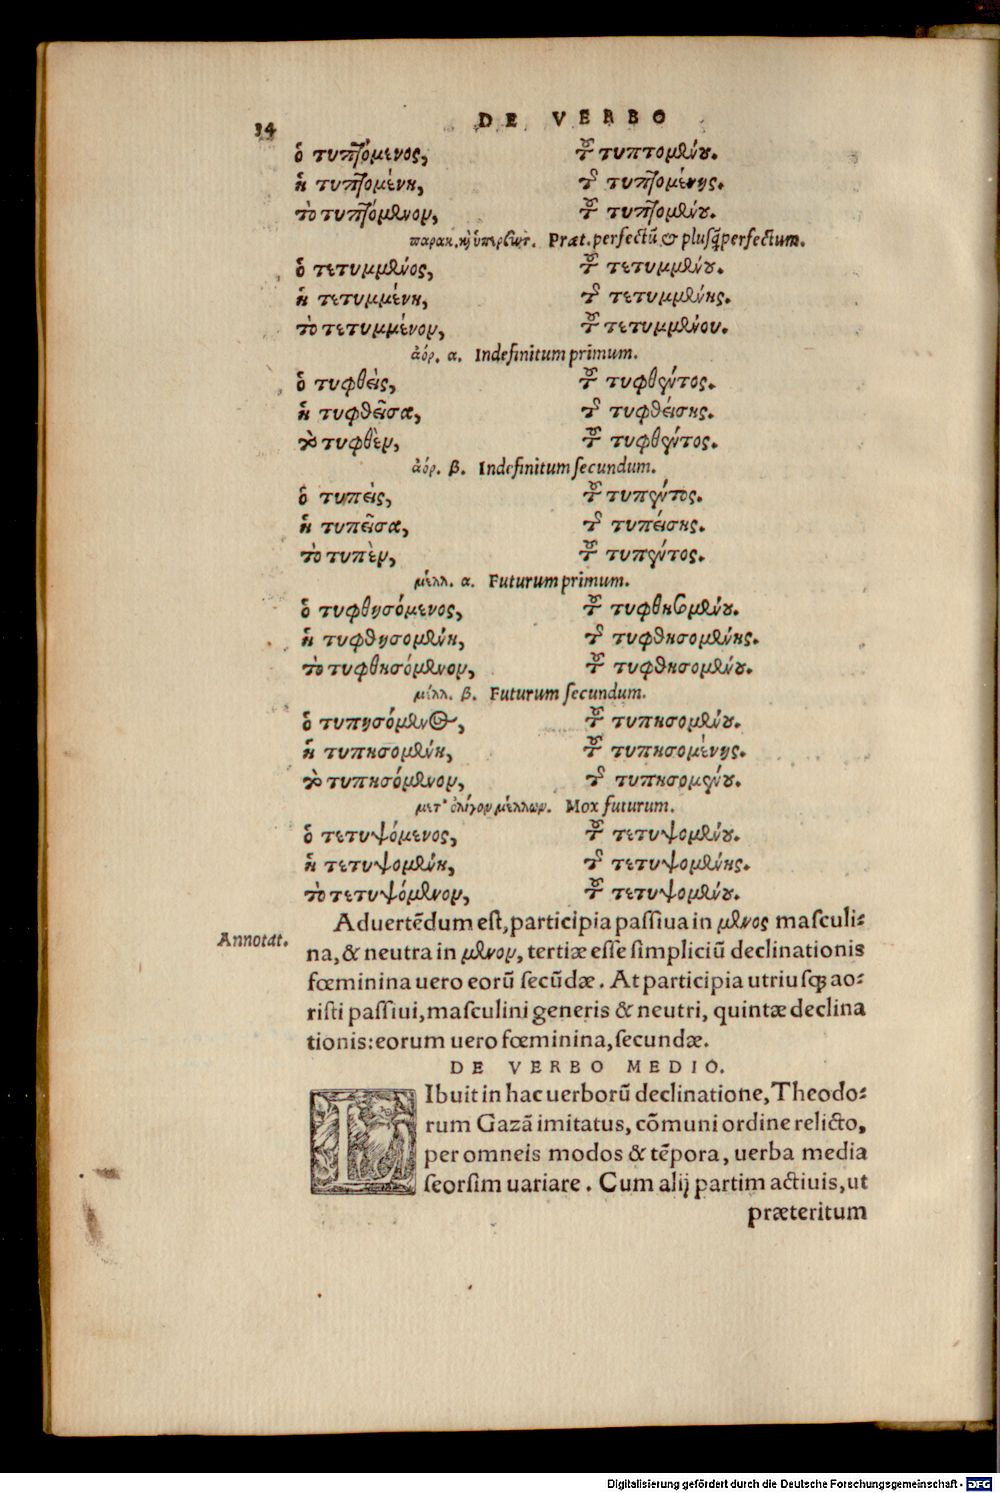 34
DE VERBO
ὁ τυπτόμενος, τοῦ τυπτομένου.
ἡ τυπτομένη, τῆς τυπτομένης.
τὸ τυπτόμενον, τοῦ τυπτομένου.
παρακ. καὶ ὑπερσωτ. Præt. perfectū & plusq̃perfectum.
ὁ τετυμμένος, τοῦ τετυμμένου.
ἡ τετυμμένη, τῆς τετυμμένης.
τὸ τετυμμένον, τοῦ τετυμμένου.
ἀόρ. α. Indefinitum primum.
ὁ τυφθεὶς, τοῦ τυφθέντος.
ἡ τυφθεῖσα, τῆς τυφθείσης.
τὸ τυφθὲν, τοῦ τυφθέντος.
ἀόρ. β. Indefinitum secundum.
ὁ τυπεὶς, τοῦ τυπέντος.
ἡ τυπεῖσα, τῆς τυπείσης.
τὸ τυπὲν, τοῦ τυπέντος.
μέλλ. α. Futurum primum.
ὁ τυφθησόμενος, τοῦ τυφθησομένου.
ἡ τυφθησομένη, τῆς τυφθησομένης.
τὸ τυφθησόμενον, τοῦ τυφθησομένου.
μέλλ. β. Futurum secundum.
ὁ τυπησόμενος, τοῦ τυπησομένου.
ἡ τυπησομένη, τοῦ τυπησομένης.
τὸ τυπησόμενον, τῆς τυπησομένου.
μετ' ὀλίγον μέλλων. Mox futurum.
ὁ τετυψόμενος, τοῦ τετυψομένου.
ἡ τετυψομένη, τῆς τετυψομένης.
τὸ τετυψόμενον, τοῦ τετυψομένου.
Aduertēdum est, participia passiua in μενος masculi-
Annotat.
na, & neutra in μενον, tertiæ esse simpliciū declinationis
fœminina uero eorū secūdæ. At participia utriusq; ao-
risti passiui, masculini generis & neutri, quintæ declina
tionis: eorum uero fœminina, secundæ.
DE VERBO MEDIO.
LIbuit in hac uerborū declinatione, Theodo-
rum Gazā imitatus, cōmuni ordine relicto,
per omneis modos & tēpora, uerba media
seorsim uariare. Cum alij partim actiuis, ut
præteritum
Digitalisierung gefördert durch die Deutsche Forschungsgemeinschaft - DFG